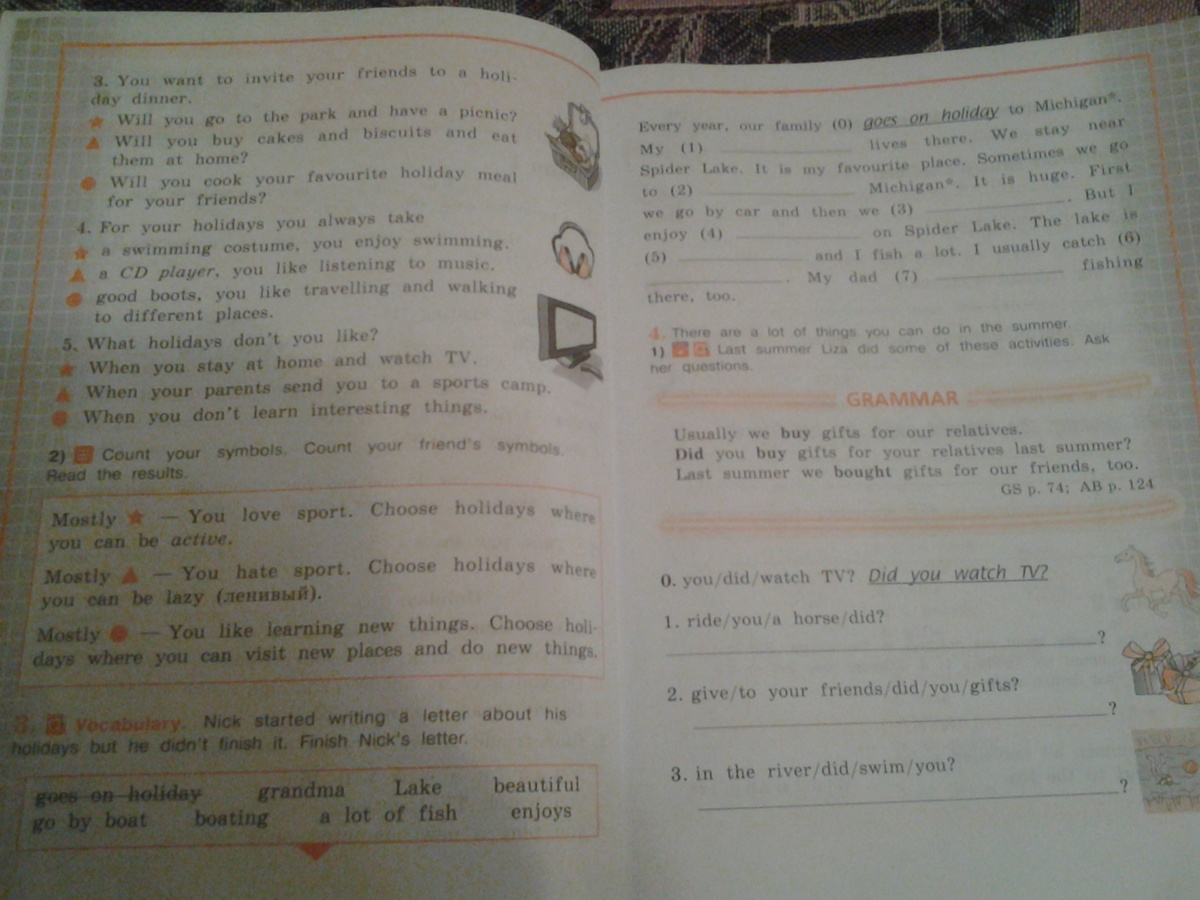 3. You want to invite your friends to a holi-
day dinner.
Will you go to the park and have a picnic?
Will you buy cakes and biscuits and eat
them at home?
Will you cook your favourite holiday meal
for your friends?
4. For your holidays you always take
a swimming costume, you enjoy swimming.
a CD player, you like listening to music.
good boots, you like travelling and walking
to different places.
5. What holidays don't you like?
When you stay at home and watch TV.
When your parents send you to a sports camp.
When you don't learn interesting things.
2) Count your symbols. Count your friend's symbols.
Read the results.
Mostly ★ — You love sport. Choose holidays where
you can be active.
Mostly ▲ — You hate sport. Choose holidays where
you can be lazy (ленивый).
Mostly ● — You like learning new things. Choose holi-
days where you can visit new places and do new things.
3. Vocabulary. Nick started writing a letter about his
holidays but he didn't finish it. Finish Nick's letter.
goes on holiday grandma Lake beautiful
go by boat boating a lot of fish enjoys
Every year, our family (0) goes on holiday to Michigan*.
My (1) ____________ lives there. We stay near
Spider Lake. It is my favourite place. Sometimes we go
to (2) ____________ Michigan*. It is huge. First
we go by car and then we (3) ____________. But I
enjoy (4) ____________ on Spider Lake. The lake is
(5) ____________ and I fish a lot. I usually catch (6)
____________. My dad (7) ____________ fishing
there, too.
4. There are a lot of things you can do in the summer.
1) Last summer Liza did some of these activities. Ask
her questions.
GRAMMAR
Usually we buy gifts for our relatives.
Did you buy gifts for your relatives last summer?
Last summer we bought gifts for our friends, too.
GS p. 74; AB p. 124
0. you/did/watch TV? Did you watch TV?
1. ride/you/a horse/did?
____________?
2. give/to your friends/did/you/gifts?
____________?
3. in the river/did/swim/you?
____________?